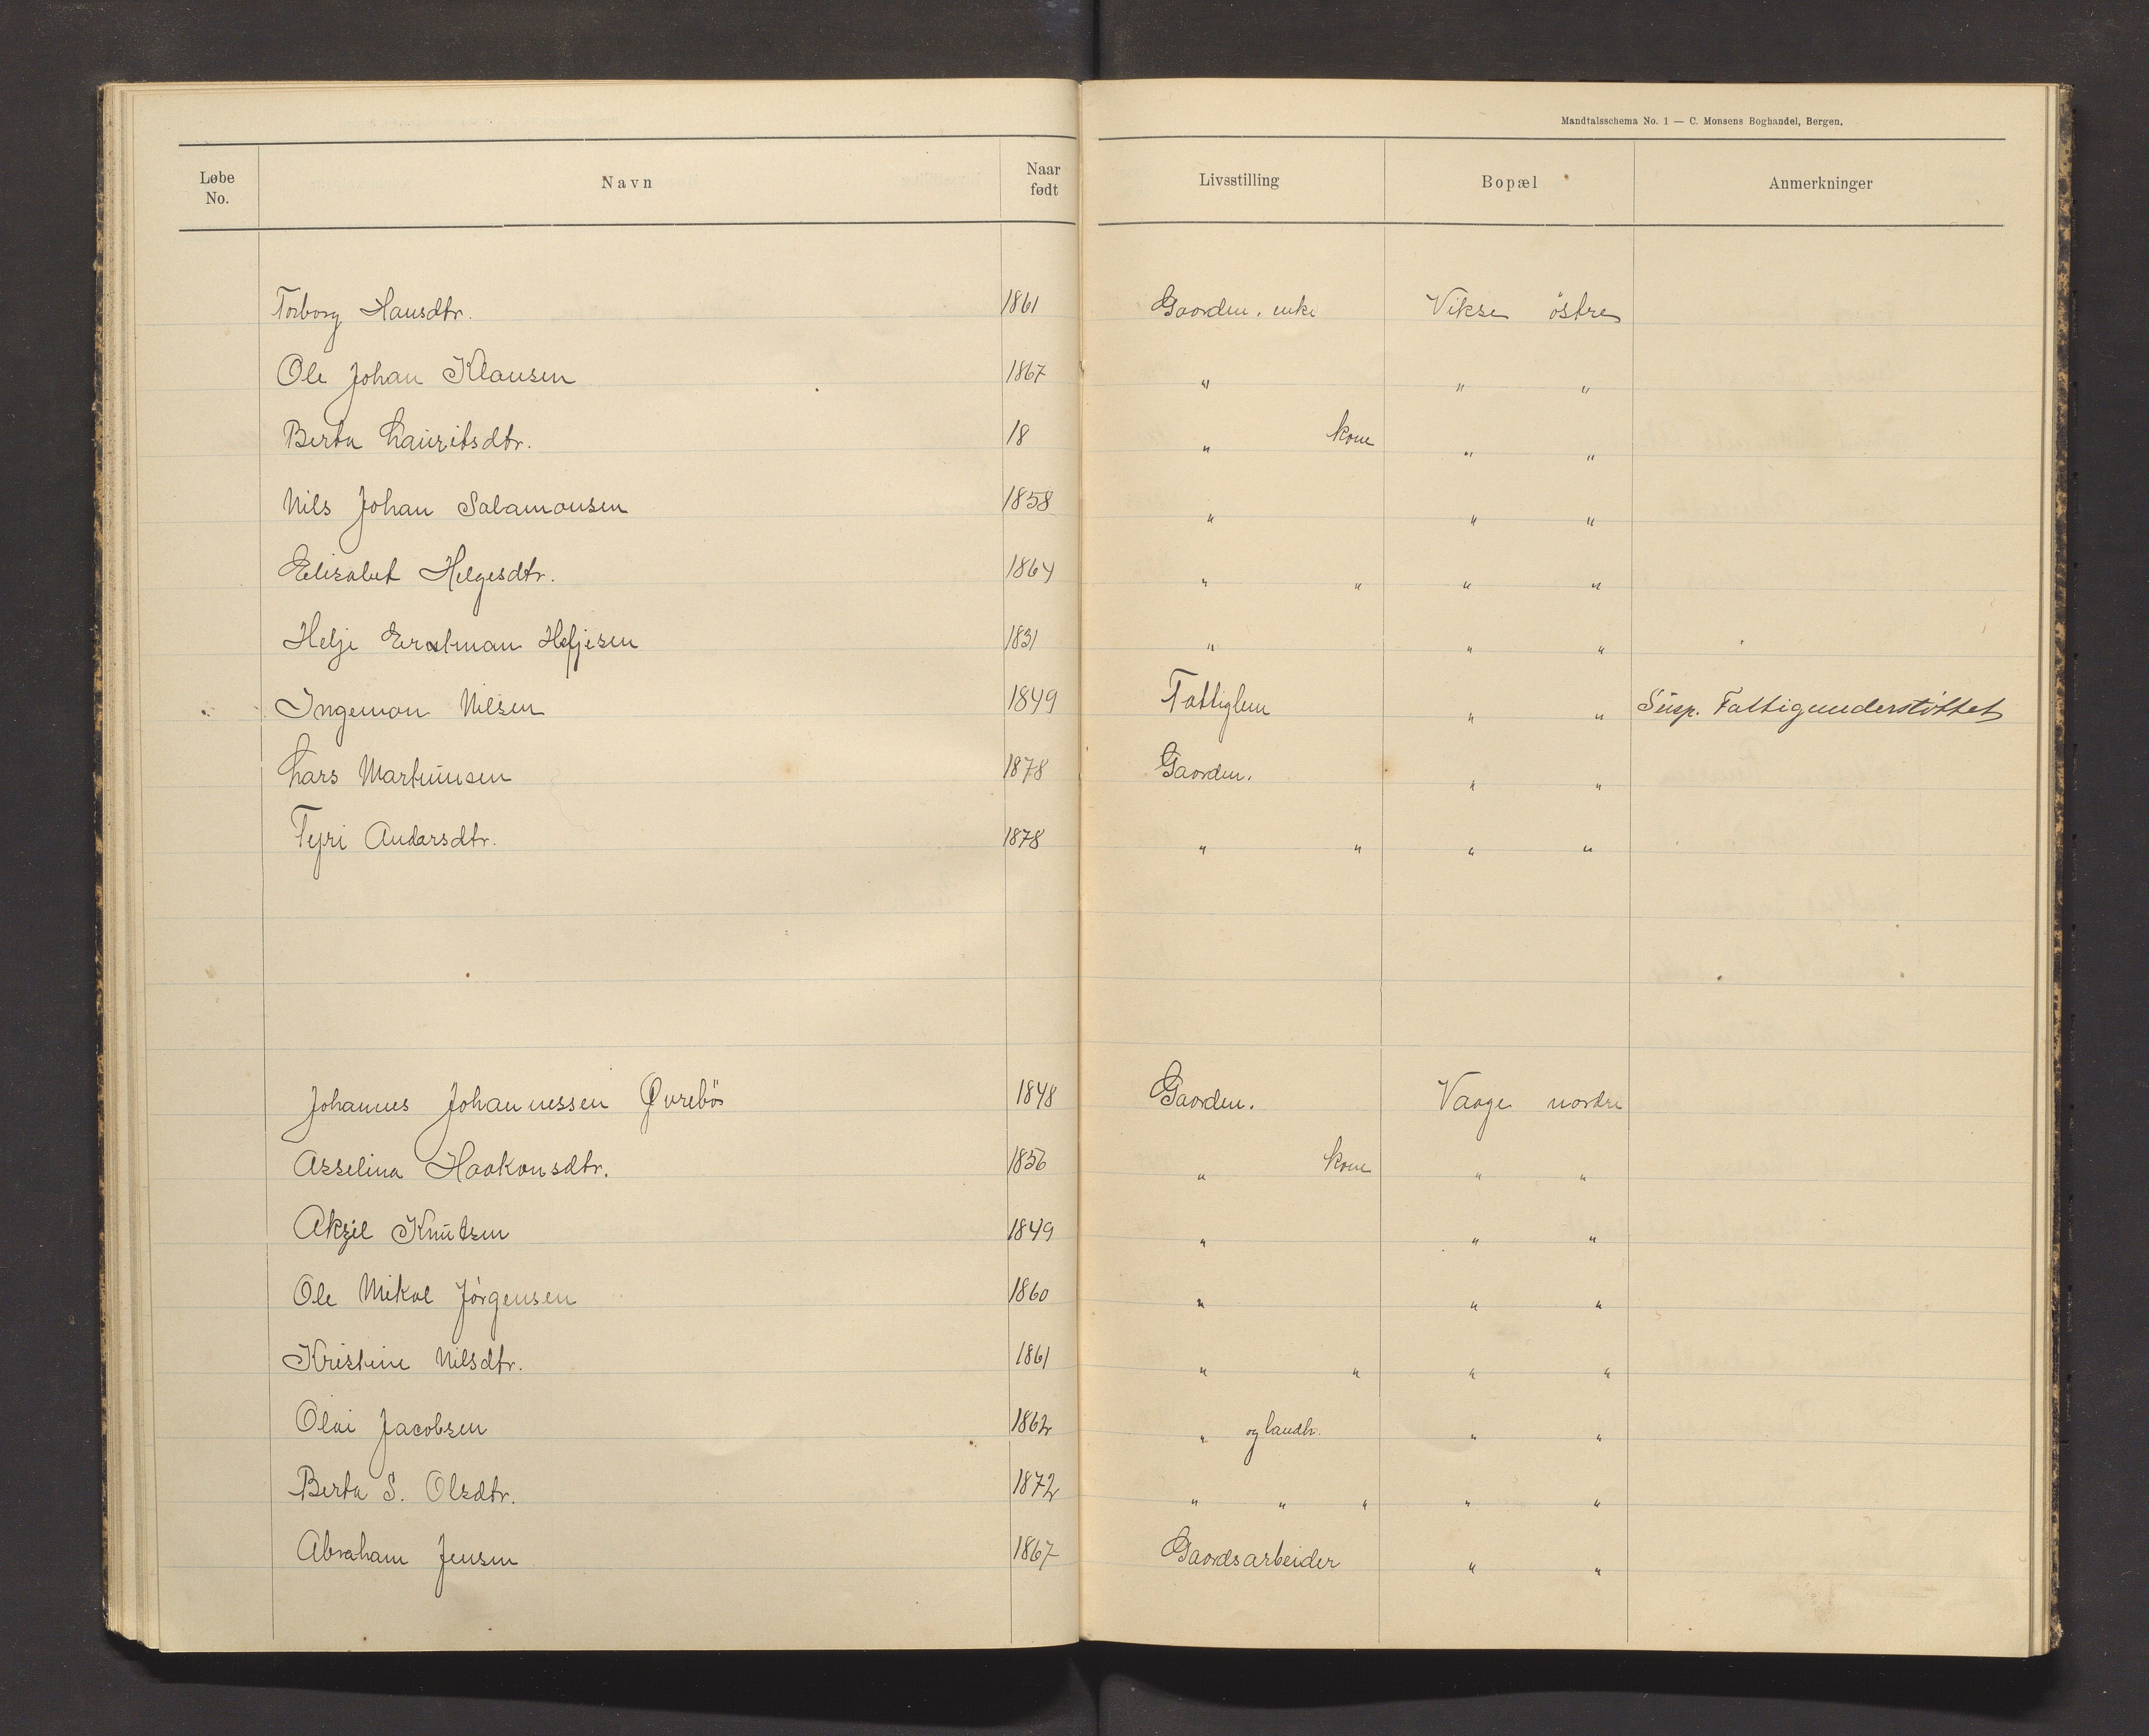 Mandtalsschema No. 1 — C. Monsens Boghandel, Bergen.
Løbe No. Navn Naar født Livsstilling Bopæl Anmerkninger
Torborg Hansdtr. 1861 Gaardm. enke Vikse östre
Ole Johan Klausen 1867 " " "
Berta Lauritsdtr. 18 " kone " "
Nils Johan Salamonsen 1858 " " "
Elisabet Helgesdtr. 1864 " " " "
Helje Heljesen 1831 " " "
Ingeman Nilsen 1849 Fattiglem " " Susp. Fattigunderstöttet
Lars Martinusen 1878 Gaardm. " "
Tyri Andarsdtr. 1878 " " " "
Johannes Johannessen Øvrebö 1848 Gaardm. Vaage nordre
Asselina Haakonsdtr. 1856 " kone " "
Aksel Knutsen 1849 " " "
Ole Mikal Jörgensen 1860 " " "
Kristine Nilsdtr. 1861 " " " "
Olai Jacobsen 1862 " og landh. " "
Berta S. Olsdtr. 1872 " " " " "
Abraham Jensen 1867 Gaardsarbeider " "